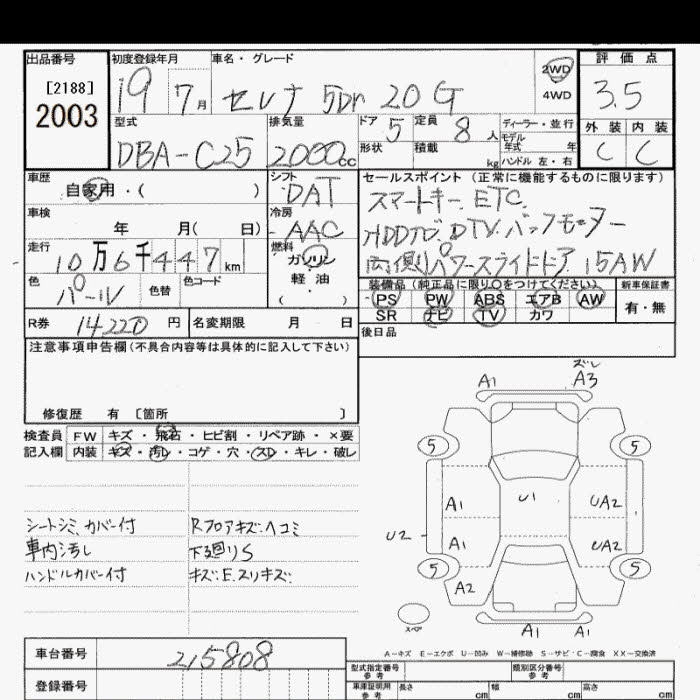 出品番号
[2188]
2003
初度登録年月
19 7月
車名・グレード
セレナ 5Dr 20G
2WD
4WD
評価点
3.5
外装 内装
C C
型式
DBA-C25
排気量
2000cc
ドア 5
形状
定員 8人
積載 kg
ディーラー・並行
モデル
年式 年
ハンドル 左・右
車歴
自家用・( )
シフト
DAT
セールスポイント (正常に機能するものに限ります)
スマートキー. ETC.
HDDナビ. DTV. バックモーター
両側パワースライドドア. 15AW
車検
年 月( 日)
冷房
AAC
走行
10万6千447km
燃料
ガソリン
軽・油
色
パール
色替
色コード
装備品(純正品に限り○をつけてください)
PS PW ABS エアB AW
SR ナビ TV カワ
新車保証書
有・無
R券 14220円
名変期限 月 日
後日品
注意事項申告欄(不具合内容等は具体的に記入して下さい)
修復歴 有 〔箇所 〕
検査員 FW キズ・飛石・ヒビ割・リペア跡・×要
記入欄 内装 キズ・汚レ・コゲ・穴・スD・キレ・破レ
シートシミ、カバー付
車内汚し
ハンドルカバー付
Rフロアキズ・ヘコミ
下廻りS
キズ・E.スリキズ・
A1
ズレ
A3
5 5
A1 U1 UA2
U2
A1 UA2
5 5
A2
スペア
A1 A1
A-キズ E-エクボ U-凹み W-補修跡 S-サビ・C-腐食 XX-交換済
車台番号
215808
登録番号
型式指定番号
参考
類別区分番号
参考
車庫証明用
参考
長さ cm
幅 cm
高さ cm